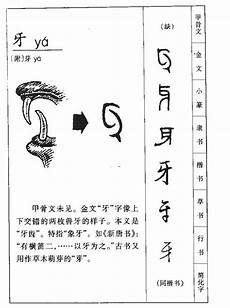 牙 yá
(附)芽 yá
甲骨文未见。金文“牙”字像上
下交错的两枚兽牙的样子。本义是
“牙齿”。特指“象牙”。如《新唐书》:
“有横笛二,……以牙为之。”古书又
用作草木萌芽的“芽”。
(缺)
牙
牙
(同楷书)
甲骨文
金文
小篆
隶书
楷书
草书
行书
简化字